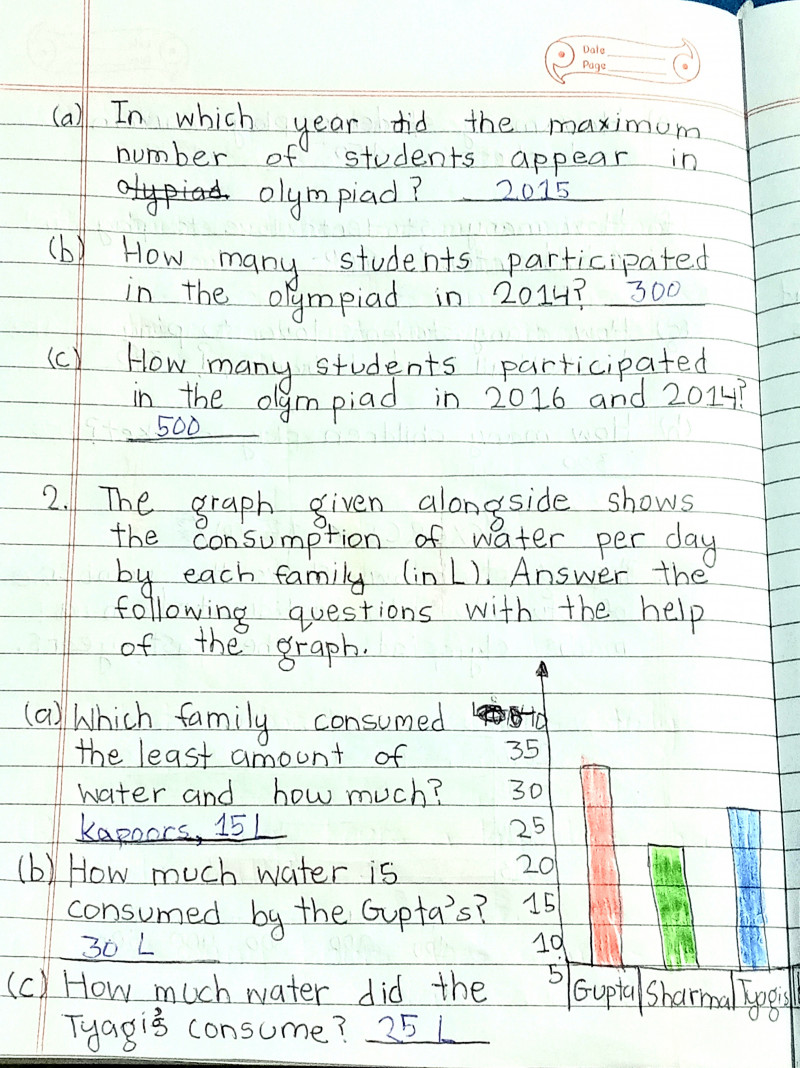 Date
Page
(a) In which year did the maximum
number of students appear in
olympiad? 2015
(b) How many students participated
in the olympiad in 2014? 300
(c) How many students participated
in the olympiad in 2016 and 2014?
500
2. The graph given alongside shows
the consumption of water per day
by each family (in L). Answer the
following questions with the help
of the graph.
(a) Which family consumed
the least amount of
water and how much?
Kapoors, 15 L
(b) How much water is
consumed by the Gupta's?
30 L
(c) How much water did the
Tyagi's consume? 25 L
40
35
30
25
20
15
10
5
Gupta Sharma Tyagis